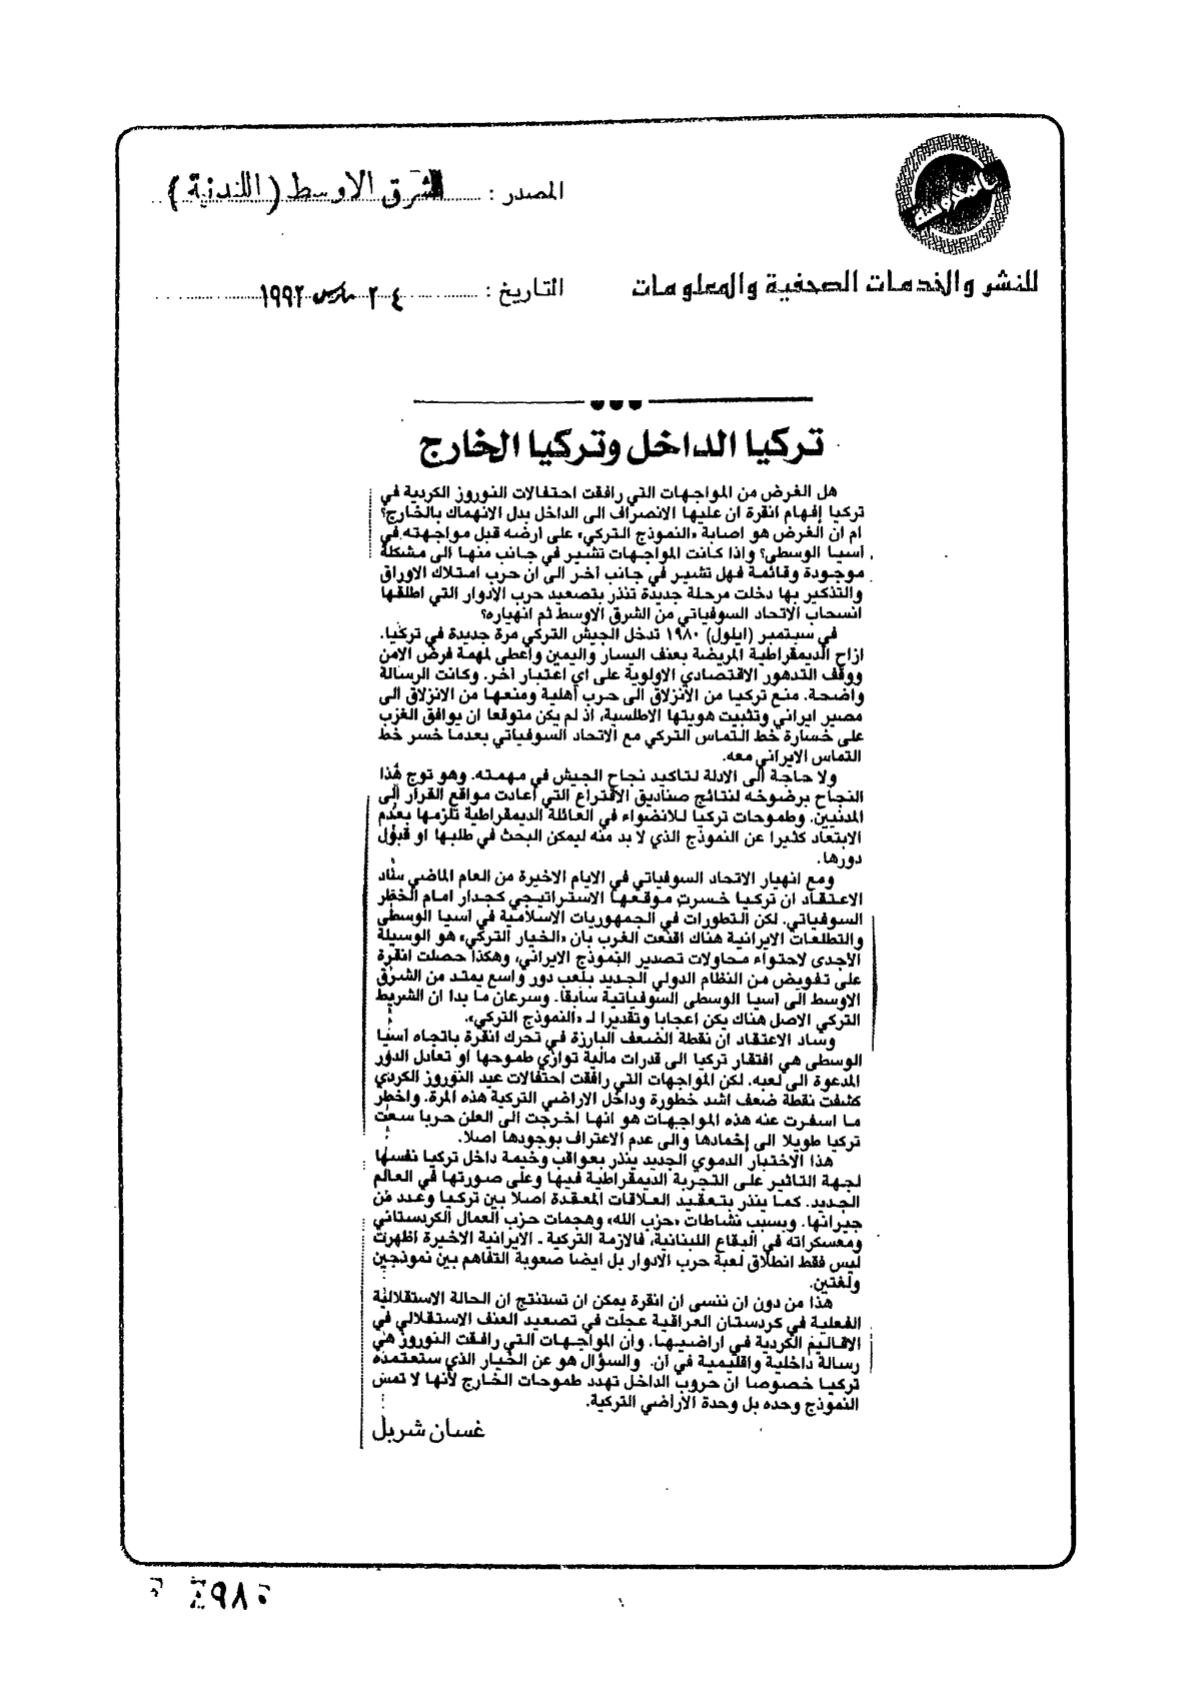 المصدر : الشرق الاوسط (اللندنية)
للنشر والخدمات الصحفية والمعلومات
التاريخ : ٢٤ مارس ١٩٩٢
تركيا الداخل وتركيا الخارج
هل الغرض من المواجهات التي رافقت احتفالات النوروز الكردية في
تركيا إفهام انقرة ان عليها الانصراف الى الداخل بدل الانهماك بالخارج؟
ام ان الغرض هو اصابة «النموذج التركي» على ارضه قبل مواجهته في
اسيا الوسطى؟ واذا كانت المواجهات تشير في جانب منها الى مشكلة
موجودة وقائمة فهل تشير في جانب آخر الى ان حرب امتلاك الاوراق
والتذكير بها دخلت مرحلة جديدة تنذر بتصعيد حرب الأدوار التي اطلقها
انسحاب الاتحاد السوفياتي من الشرق الاوسط ثم انهياره؟
في سبتمبر (ايلول) ١٩٨٠ تدخل الجيش التركي مرة جديدة في تركيا.
ازاح الديمقراطية المريضة بعنف اليسار واليمين وأعطى لمهمة فرض الامن
ووقف التدهور الاقتصادي الاولوية على اي اعتبار آخر. وكانت الرسالة
واضحة. منع تركيا من الانزلاق الى حرب أهلية ومنعها من الانزلاق الى
مصير ايراني وتثبيت هويتها الاطلسية، اذ لم يكن متوقعا ان يوافق الغرب
على خسارة خط التماس التركي مع الاتحاد السوفياتي بعدما خسر خط
التماس الايراني معه.
ولا حاجة الى الادلة لتاكيد نجاح الجيش في مهمته. وهو توج هذا
النجاح برضوخه لنتائج صناديق الاقتراع التي أعادت مواقع القرار الى
المدنيين. وطموحات تركيا للانضواء في العائلة الديمقراطية تلزمها بعدم
الابتعاد كثيرا عن النموذج الذي لا بد منه ليمكن البحث في طلبها او قبول
دورها.
ومع انهيار الاتحاد السوفياتي في الايام الاخيرة من العام الماضي ساد
الاعتقاد ان تركيا خسرت موقعها الاستراتيجي كجدار امام الخطر
السوفياتي. لكن التطورات في الجمهوريات الاسلامية في اسيا الوسطى
والتطلعات الايرانية هناك اقنعت الغرب بان «الخيار التركي» هو الوسيلة
الاجدى لاحتواء محاولات تصدير النموذج الايراني، وهكذا حصلت انقرة
على تفويض من النظام الدولي الجديد بلعب دور واسع يمتد من الشرق
الاوسط الى آسيا الوسطى السوفياتية سابقا. وسرعان ما بدا ان الشريط
التركي الاصل هناك يكن اعجابا وتقديرا لـ «النموذج التركي».
وساد الاعتقاد ان نقطة الضعف البارزة في تحرك انقرة باتجاه آسيا
الوسطى هي افتقار تركيا الى قدرات مالية توازي طموحها او تعادل الدور
المدعوة الى لعبه. لكن المواجهات التي رافقت احتفالات عيد النوروز الكردي
كشفت نقطة ضعف اشد خطورة وداخل الاراضي التركية هذه المرة. واخطر
ما اسفرت عنه هذه المواجهات هو انها اخرجت الى العلن حربا سعت
تركيا طويلا الى إخمادها والى عدم الاعتراف بوجودها اصلا.
هذا الاختبار الدموي الجديد ينذر بعواقب وخيمة داخل تركيا نفسها
لجهة التاثير على التجربة الديمقراطية فيها وعلى صورتها في العالم
الجديد. كما ينذر بتعقيد العلاقات المعقدة اصلا بين تركيا وعدد من
جيرانها. وبسبب نشاطات «حزب الله» وهجمات حزب العمال الكردستاني
ومعسكراته في البقاع اللبنانية، فالازمة التركية ـ الايرانية الاخيرة اظهرت
ليس فقط انطلاق لعبة حرب الادوار بل ايضا صعوبة التفاهم بين نموذجين
ولغتين.
هذا من دون ان ننسى ان انقرة يمكن ان تستنتج ان الحالة الاستقلالية
الفعلية في كردستان العراقية عجلت في تصعيد العنف الاستقلالي في
الاقاليم الكردية في اراضيها. وان المواجهات التي رافقت النوروز هي
رسالة داخلية واقليمية في آن. والسؤال هو عن الخيار الذي ستعتمده
تركيا خصوصا ان حروب الداخل تهدد طموحات الخارج لأنها لا تمس
النموذج وحده بل وحدة الاراضي التركية.
غسان شربل